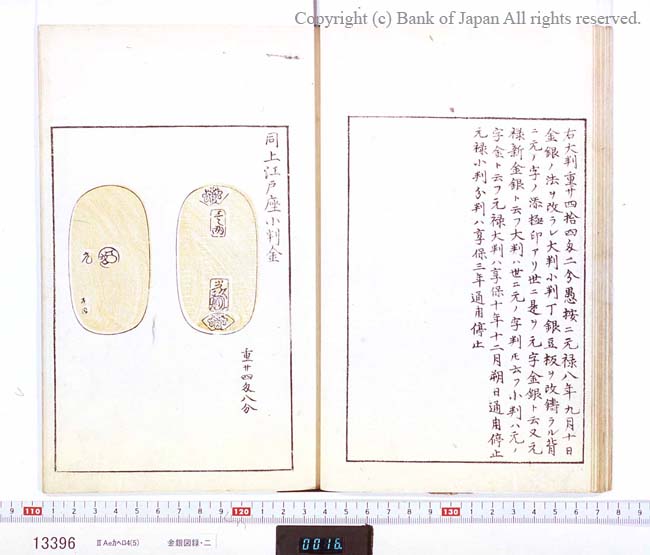 Copyright (c) Bank of Japan All rights reserved.
右大判重廿四拾四匁二分愚按ニ元禄八年九月十日
金銀ノ法ヲ改ラレ大判小判丁銀豆板ヲ改鋳ラル背
ニ元ノ字ノ添極印アリ世ニ是ヲ元字金銀ト云又元
禄新金銀ト云フ大判ハ世ニ元ノ字判モ云フ小判ハ元ノ
字金ト云フ元禄大判ハ享保十年十二月朔日通用停止
元禄小判分判ハ享保三年通用停止
同上江戸座小判金
元
重廿四匁八分
9 110 1 2 3 4 5 6 7 8 9 120 1 2 3 4 5 6 7 8 9 130 1 2 3 4 5 6 7 8 9
13396
ⅡAeカヘロ4(5)
金銀図録・二
0016